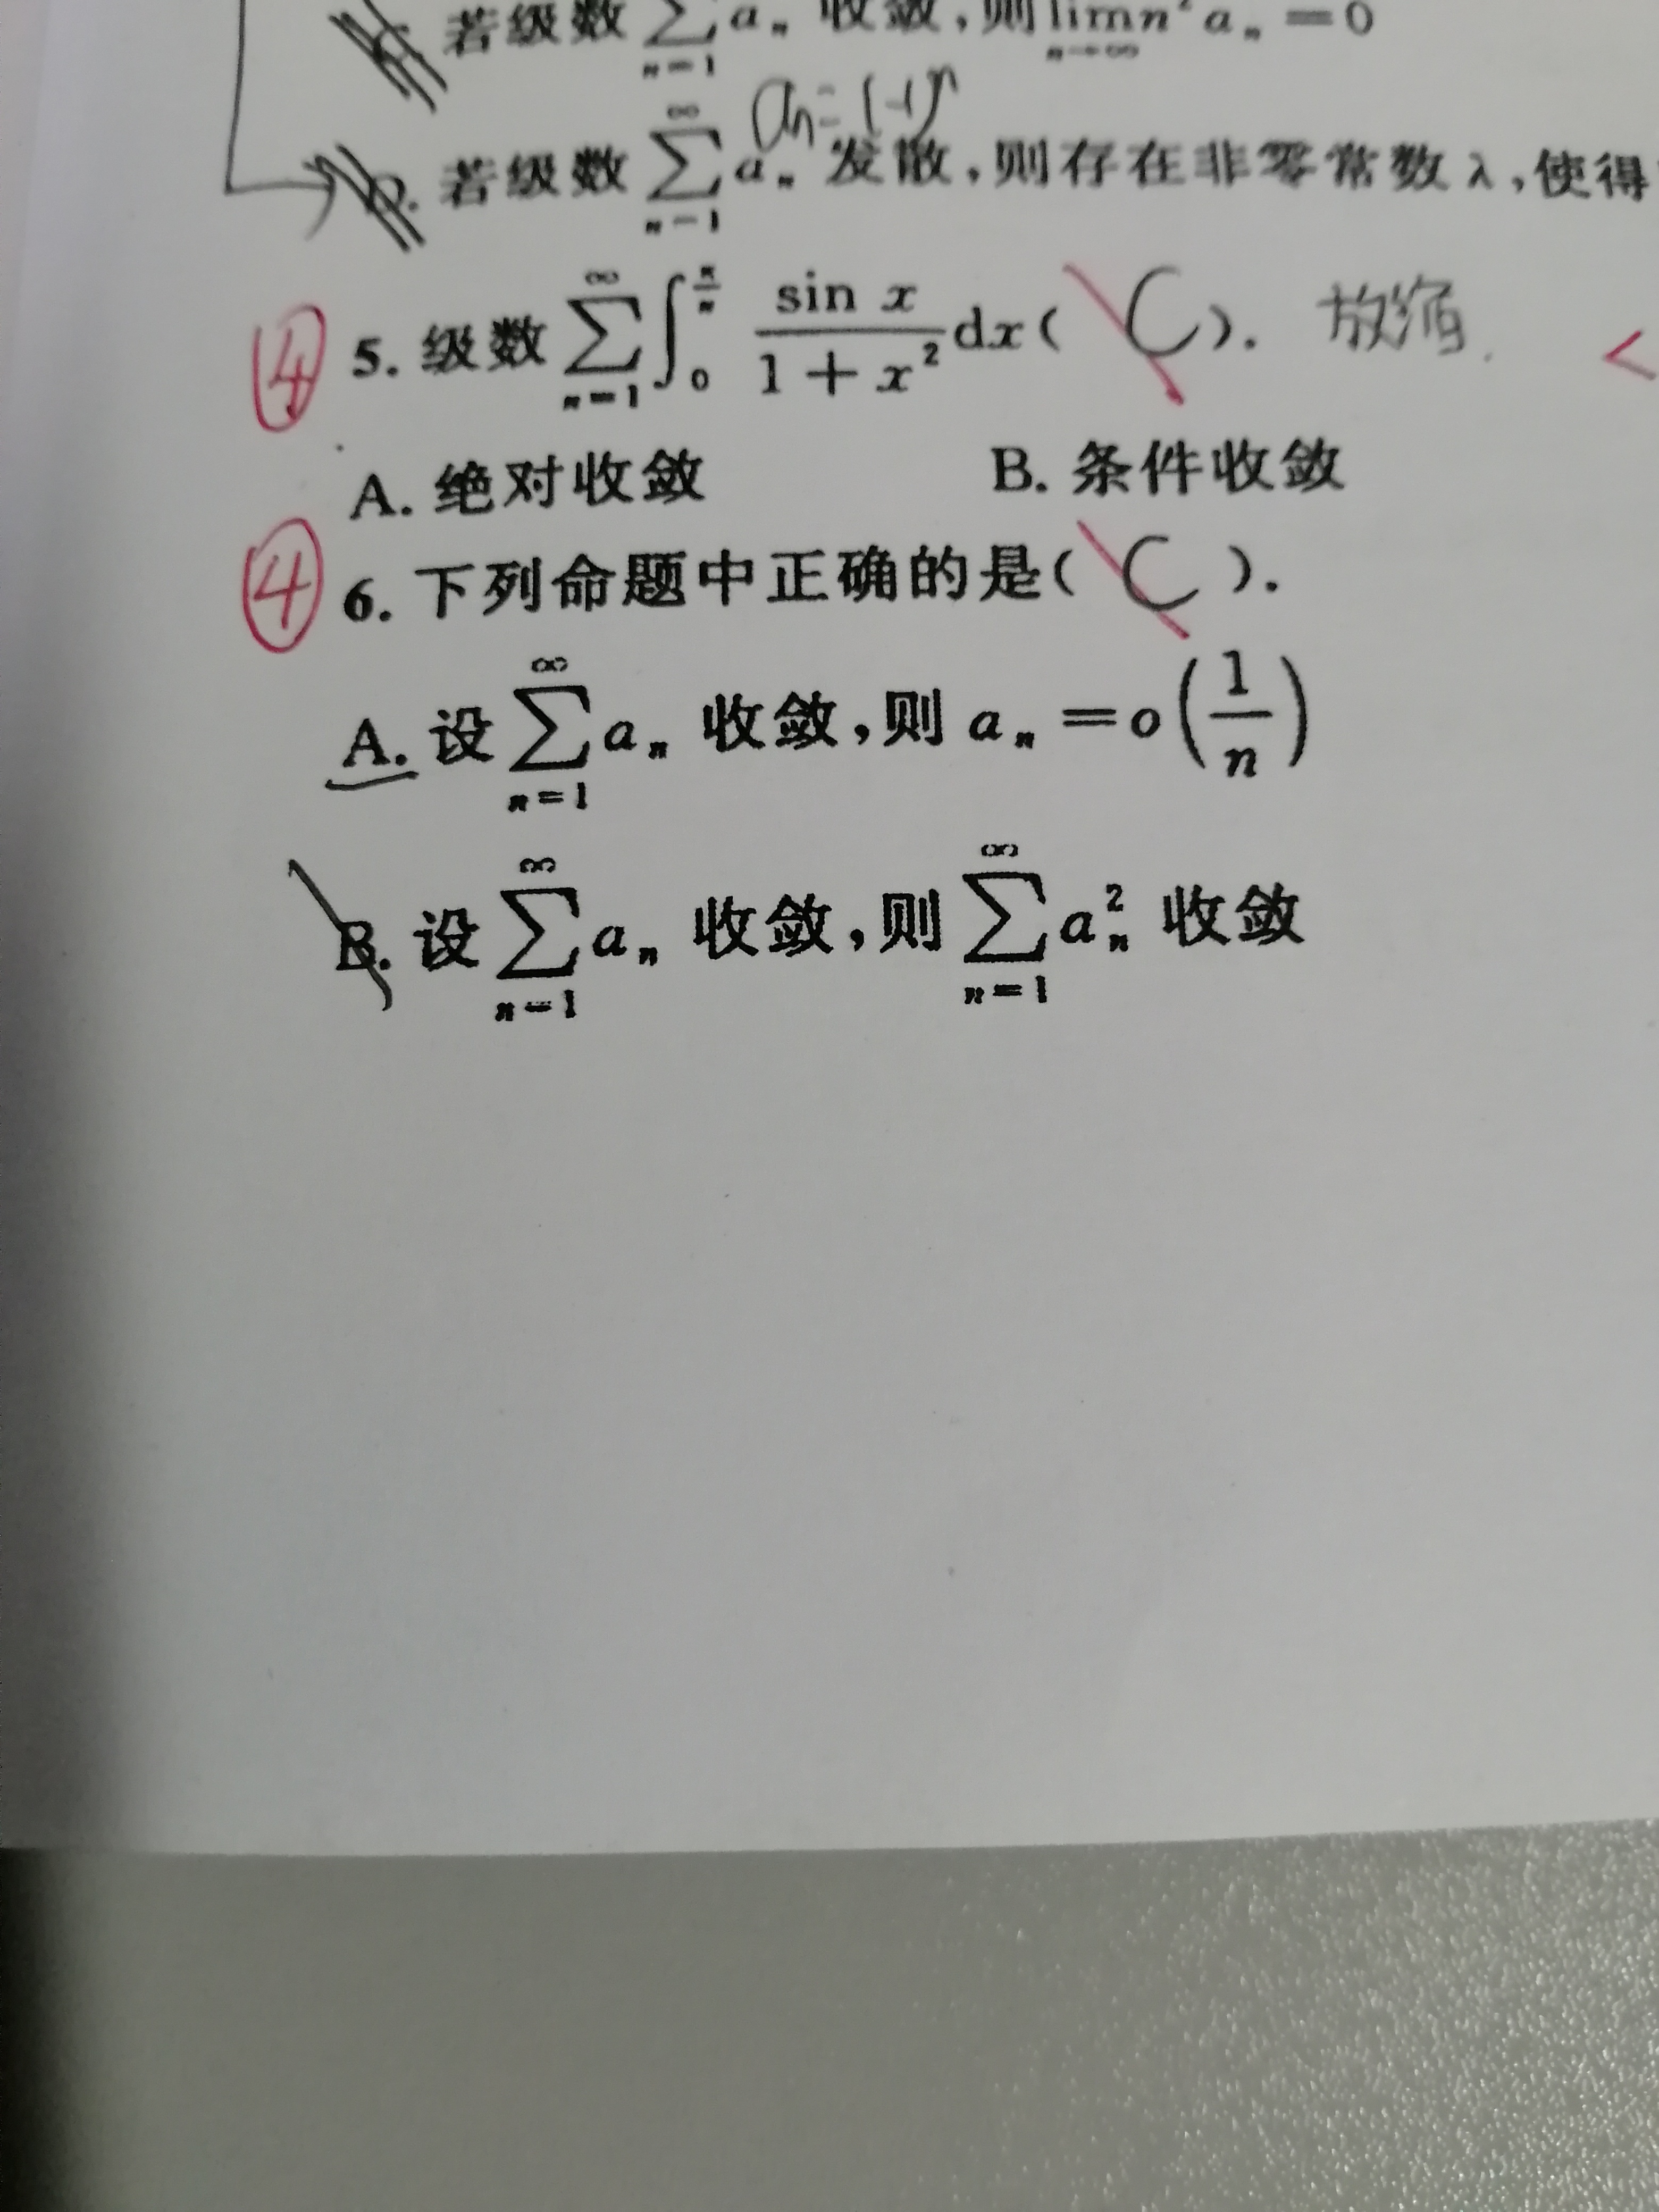 若级数 $\sum_{n=1} a_n$ 收敛,则 $\lim_{n\to\infty} n^2 a_n = 0$
$a_n = (-1)^n$
若级数 $\sum_{n=1}^{\infty} a_n$ 发散,则存在非零常数 λ,使得
④ 5. 级数 $\sum_{n=1}^{\infty} \int_0^{\frac{\pi}{n}} \frac{\sin x}{1+x^2} dx$ ( C ). 放缩.
A. 绝对收敛 B. 条件收敛
④ 6. 下列命题中正确的是( C ).
A. 设 $\sum_{n=1}^{\infty} a_n$ 收敛,则 $a_n = o\left(\frac{1}{n}\right)$
B. 设 $\sum_{n=1}^{\infty} a_n$ 收敛,则 $\sum_{n=1}^{\infty} a_n^2$ 收敛